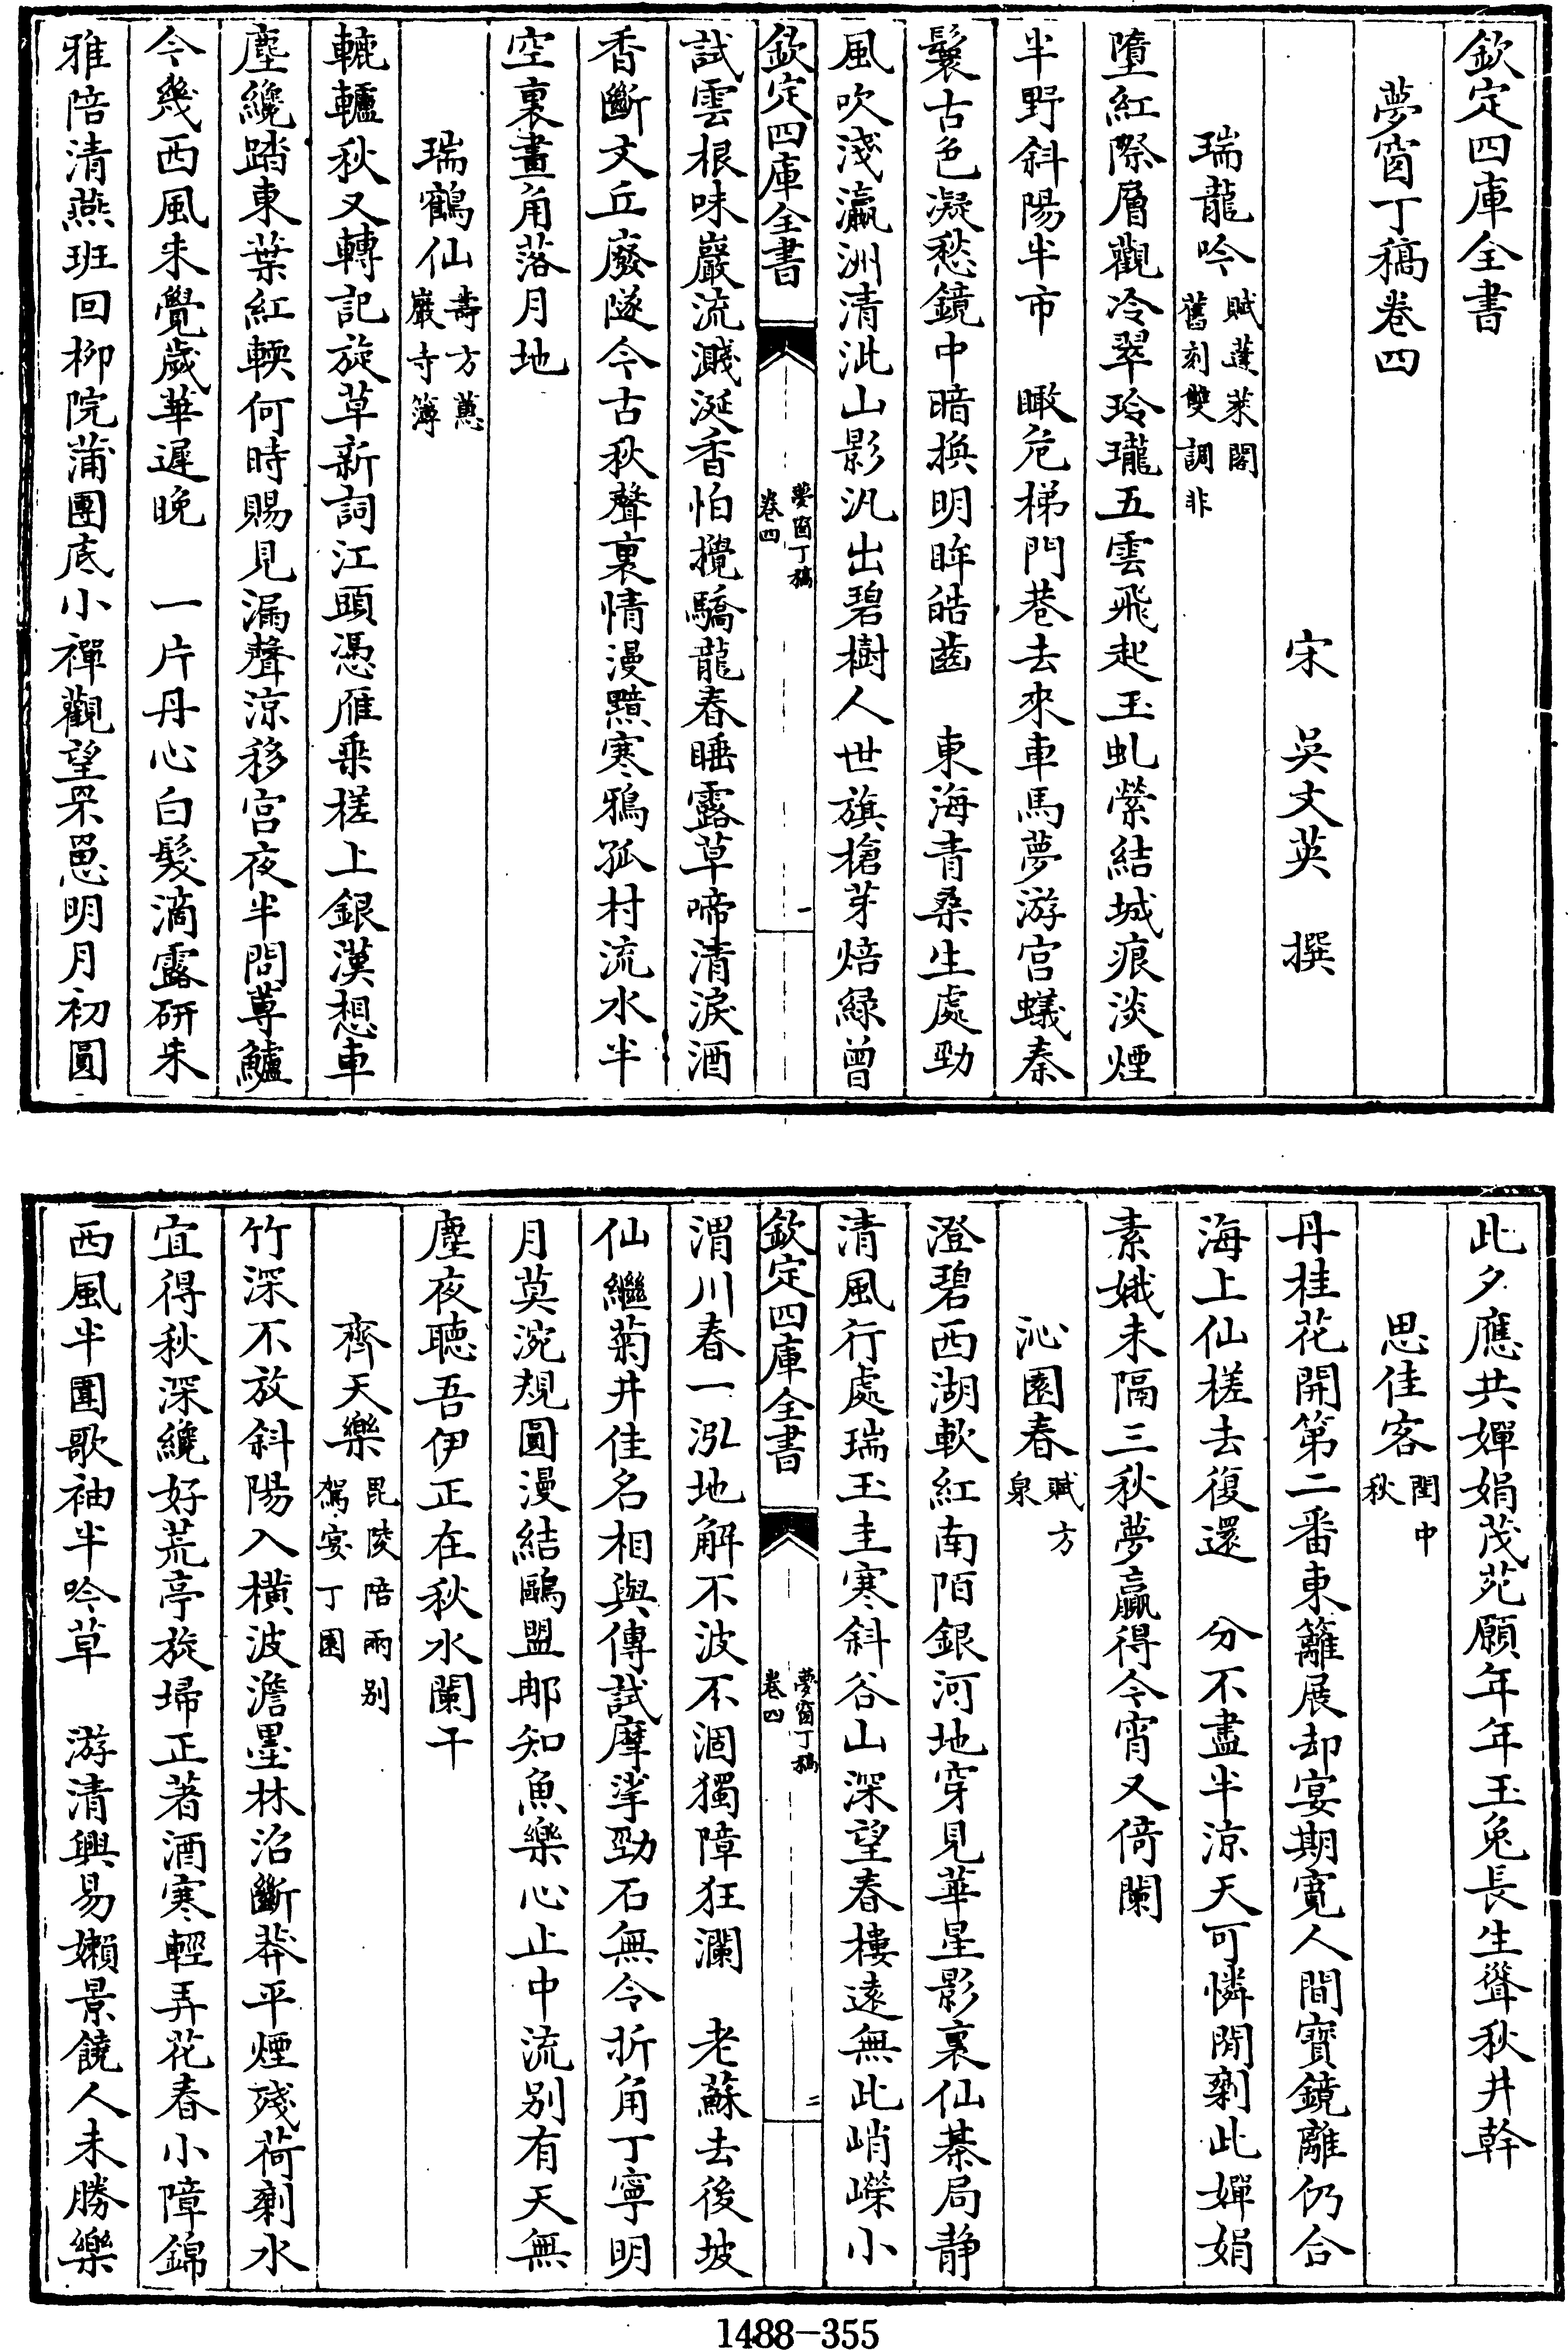 欽定四庫全書
夢窗丁稿卷四
宋　吳文英　撰
瑞龍吟賦蓬萊閣舊刻雙調非
墮紅際層觀冷翠玲瓏五雲飛起玉虬縈結城痕淡煙
半野斜陽半市　瞰危梯門巷去來車馬夢游宫蟻秦
鬟古色凝愁鏡中暗換明眸皓齒　東海青桑生處勁
風吹淺瀛洲清泚山影汎出碧樹人世旗槍芽焙緑曾
欽定四庫全書
夢窗丁稿
卷四
一
試雲根味巖流濺涎香怕攪驕龍春睡露草啼清淚酒
香斷文丘廢隧今古秋聲裏情漫黯寒鴉孤村流水半
空裏畫角落月地
瑞鶴仙壽方蕙巖寺簿
轆轤秋又轉記旋草新詞江頭憑雁乗槎上銀漢想車
塵纔踏東華紅輭何時賜見漏聲涼移宫夜半問蓴鱸
今幾西風未覺歲華遲晚　一片丹心白髮滴露研朱
雅陪清燕班回柳院蒲團底小禪觀望罘罳明月初圓
此夕應共嬋娟茂苑願年年玉兎長生聳秋井幹
思佳客閏中秋
丹桂花開第二番東籬展却宴期寛人間寶鏡離仍合
海上仙槎去復還　分不盡半凉天可憐閒剩此嬋娟
素娥未隔三秋夢贏得今宵又倚闌
沁園春賦方泉
澄碧西湖軟紅南陌銀河地穿見華星影裏仙棊局靜
清風行處瑞玉圭寒斜谷山深望春樓遠無此峭嶸小
欽定四庫全書
夢窗丁稿
卷四
二
渭川春一泓地解不波不涸獨障狂瀾　老蘇去後坡
仙繼菊井佳名相與傳試摩挲勁石無令折角丁寧明
月莫涴規圓漫結鷗盟那知魚樂心止中流别有天無
塵夜聽吾伊正在秋水闌干
齊天樂毘陵陪兩别駕宴丁園
竹深不放斜陽入横波澹墨林沼斷莽平煙殘荷剩水
宜得秋深纔好荒亭旋埽正著酒寒輕弄花春小障錦
西風半圍歌袖半吟草　游清興易嬾景饒人未勝樂
1488-355